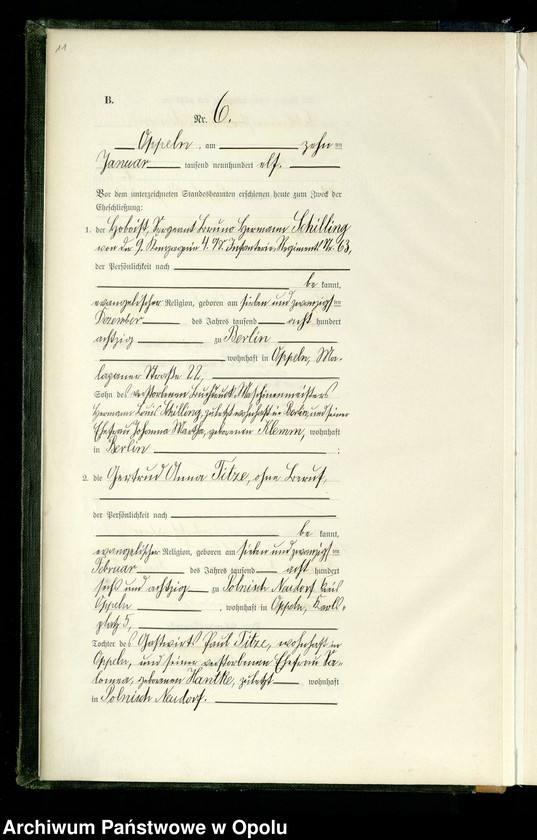 11
B.
Nr. 6.
Oppeln, am zehn ten
Januar tausend neunhundert elf.
Vor dem unterzeichneten Standesbeamten erschienen heute zum Zweck der
Eheschließung:
1. der Hoboist, Sergeant Bruno Hermann Schilling
von der 9. Kompagnie 4. O. S. Infanterie-Regiments Nr. 63,
der Persönlichkeit nach
be kannt,
evangelischer Religion, geboren am sieben und zwanzigs ten
Dezember des Jahres tausend acht hundert
achtzig zu Berlin
wohnhaft in Oppeln, Ma-
lapaner Straße 22,
Sohn des verstorbenen Maschinenmeisters
Hermann Louis Schilling, zuletzt wohnhaft in Berlin, und seiner
Ehefrau Johanna Martha, geborenen Klemm, wohnhaft
in Berlin ;
2. die Gertrud Anna Titze, ohne Beruf,
der Persönlichkeit nach
be kannt,
evangelischer Religion, geboren am sieben und zwanzigs ten
Februar des Jahres tausend acht hundert
sechs und achtzig zu Polnisch Neudorf Kreis
Oppeln , wohnhaft in Oppeln, Karls-
platz 5,
Tochter des Gastwirts Paul Titze, wohnhaft in
Oppeln, und seiner verstorbenen Ehefrau Sa-
lomea, geborenen Hantke, zuletzt wohnhaft
in Polnisch Neudorf.
Archiwum Państwowe w Opolu